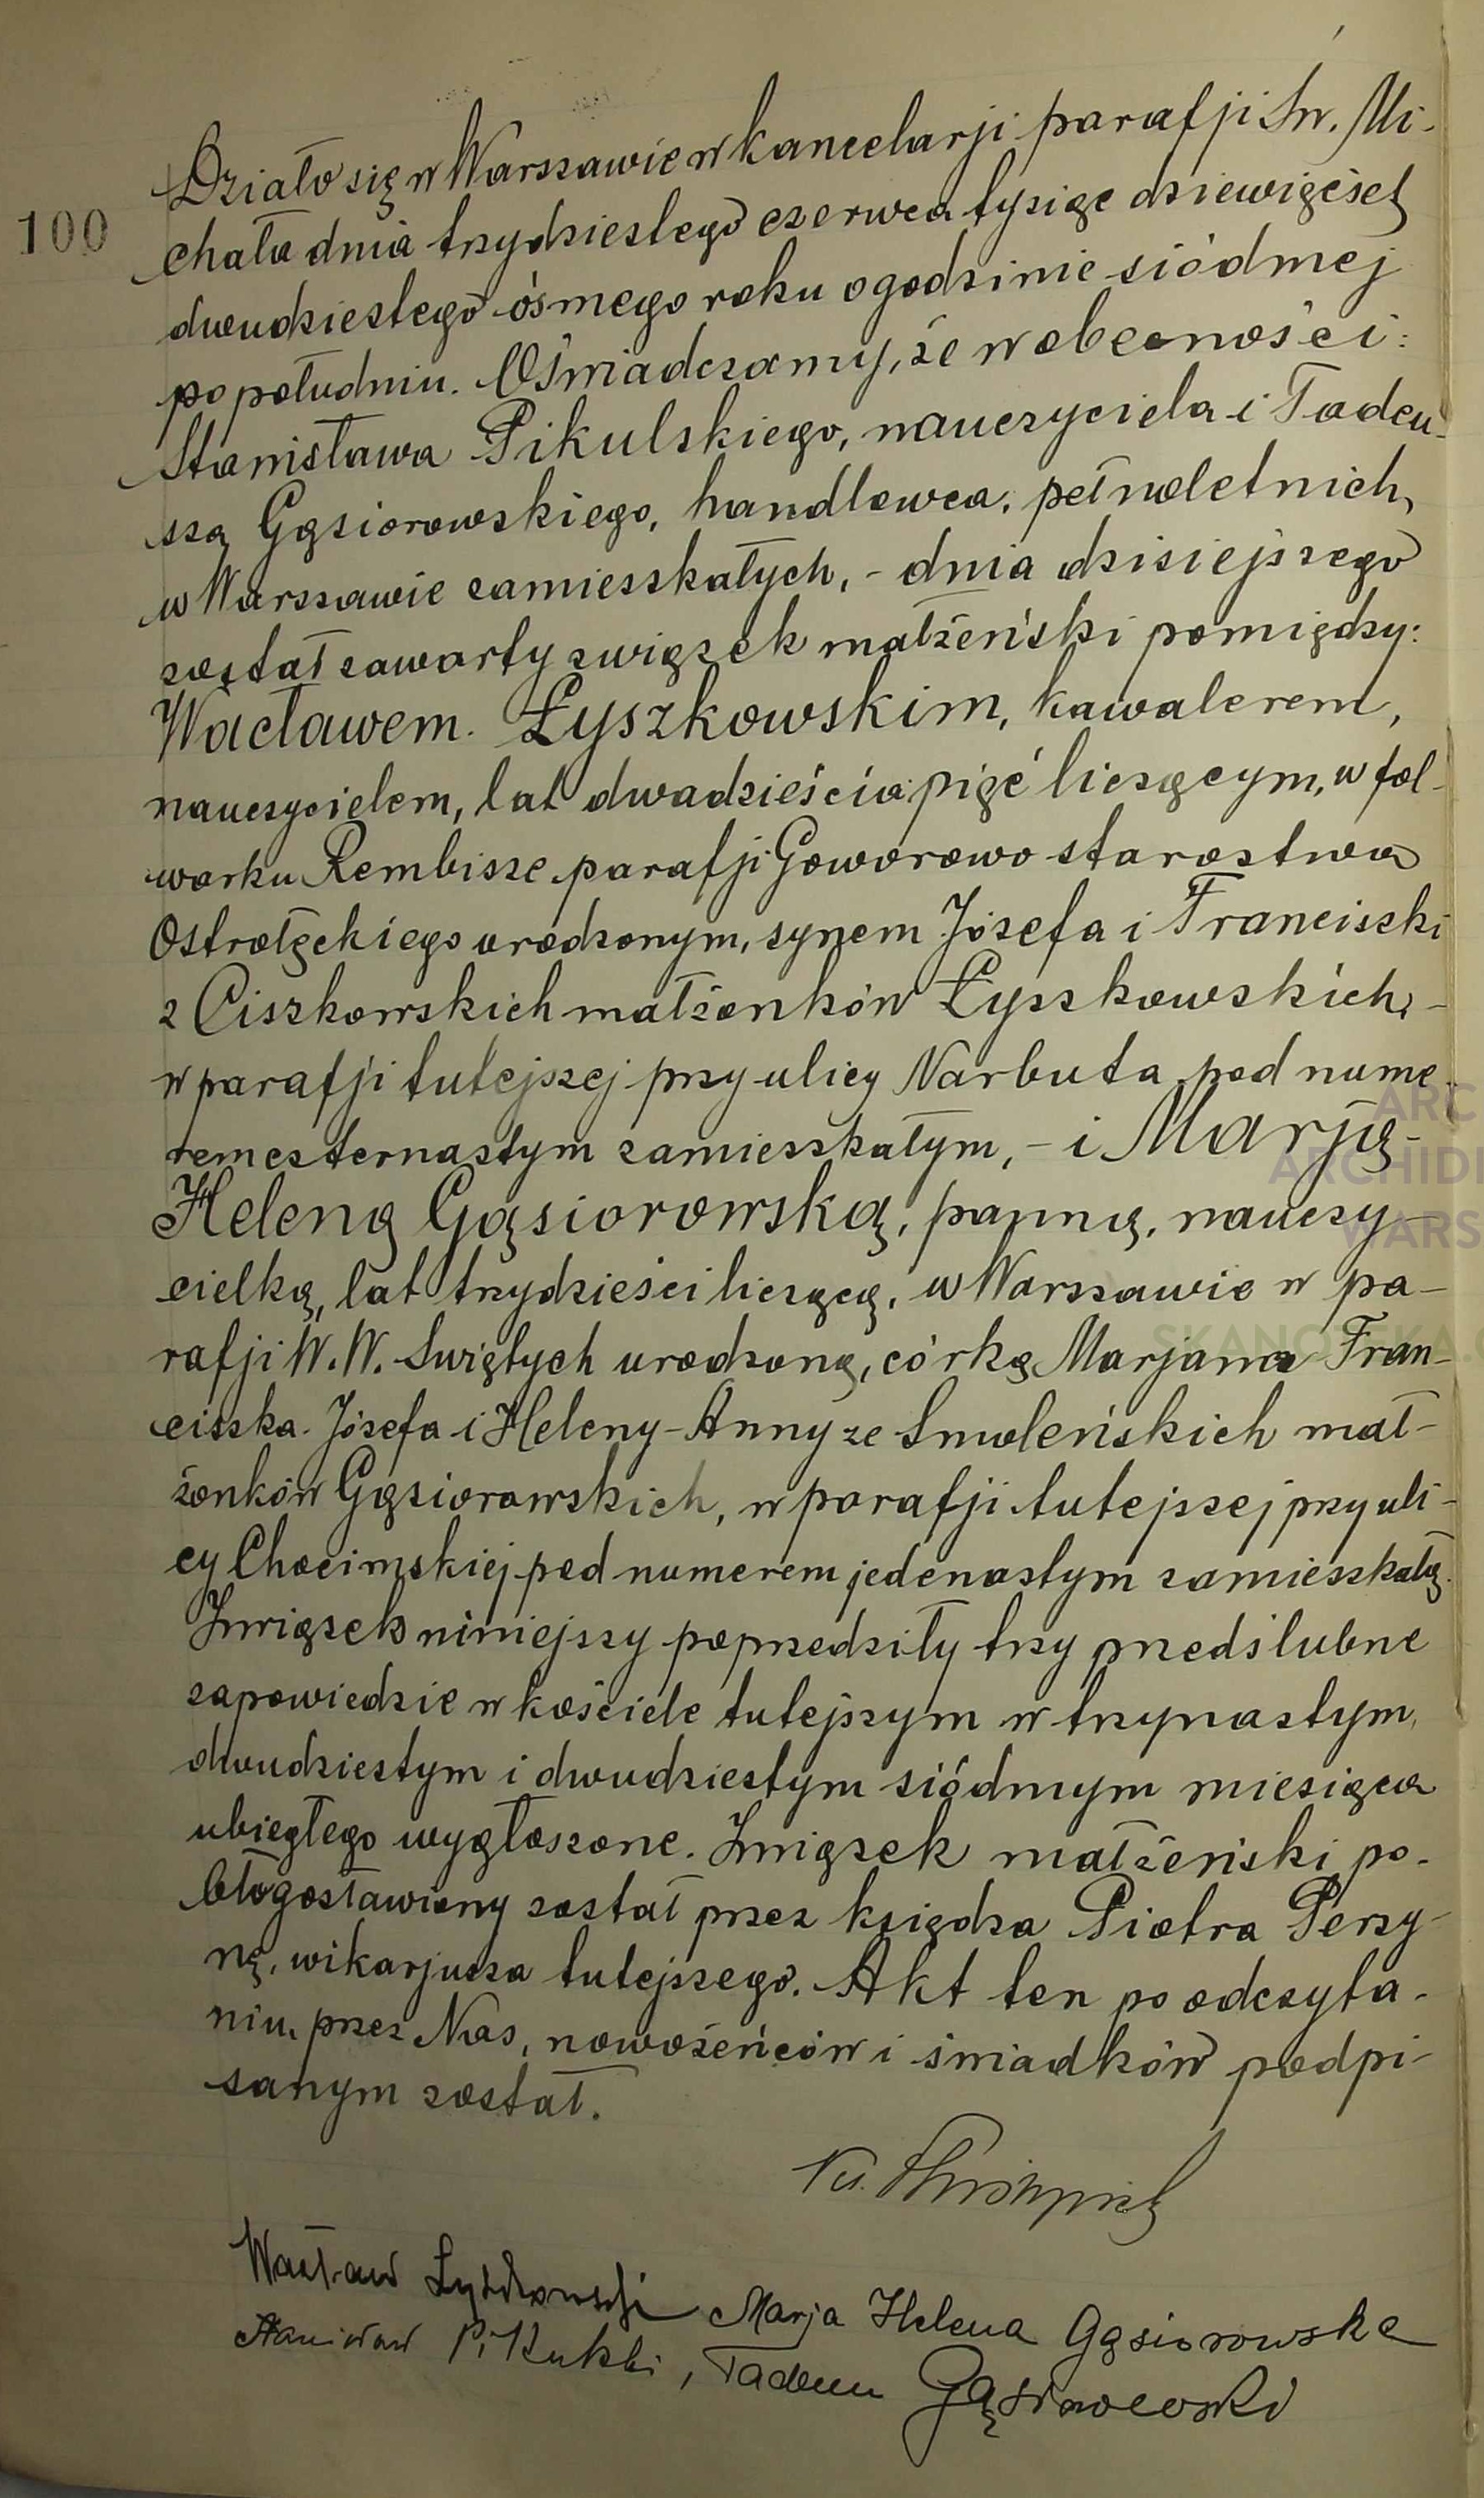 100
Działo się w Warszawie w kancelarji parafji Św. Mi-
chała dnia trzydziestego czerwca tysiąc dziewięćset
dwudziestego ósmego roku o godzinie siódmej
popołudniu. Oświadczamy, że w obecności:
Stanisława Pikulskiego, nauczyciela i Tadeu-
sza Gąsiorowskiego, handlowca, pełnoletnich,
w Warszawie zamieszkałych, - dnia dzisiejszego
został zawarty związek małżeński pomiędzy:
Wacławem Łyszkowskim, kawalerem,
nauczycielem, lat dwadzieścia pięć liczącym, w fol-
warku Rembisze parafji Goworowo starostwa
Ostrołęckiego urodzonym, synem Józefa i Franciszki
z Ciszkowskich małżonków Łyszkowskich, -
w parafji tutejszej przy ulicy Narbuta pod nume-
rem czternastym zamieszkałym, - i Marją -
Heleną Gąsiorowską, panną, nauczy-
cielką, lat trzydzieści liczącą, w Warszawie w pa-
rafji W. W. Świętych urodzoną, córką Marjana Fran-
ciszka Józefa i Heleny-Anny ze Smoleńskich mał-
żonków Gąsiorowskich, w parafji tutejszej przy uli-
cy Chocimskiej pod numerem jedenastym zamieszkałą.
Związek niniejszy poprzedziły trzy przedślubne
zapowiedzie w kościele tutejszym w trzynastym,
dwudziestym i dwudziestym siódmym miesiąca
ubiegłego wygłoszone. Związek małżeński po-
błogosławiony został przez księdza Piotra Perzy-
nę, wikarjusza tutejszego. Akt ten po odczyta-
niu, przez Nas, nowożeńców i świadków podpi-
sanym został.
Ks.
Wacław Łyszkowski Marja Helena Gąsiorowska
Stanisław Pikulski, Tadeusz Gąsiorowski
ARC
ARCHIDI
WARS
SKANOTEKA.